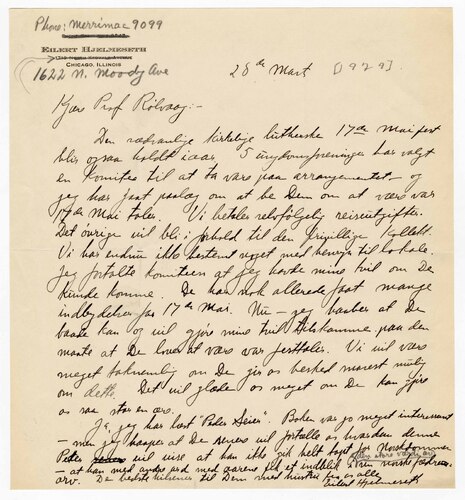 Phone: Merrimac 9099
EILERT HJELMESETH
CHICAGO, ILLINOIS
1622 N. Moody Ave
28de Mart [1929].
Kjære Prof Rölvaag:-
Den sædvanlige kirkelige lutherske 17de Mai fest
blir ogsaa holdt iaar. 5 ungdomsforeninger har valgt
en Komitee til at ta vare paa arrangementet - og
jeg har faat paalæg om at be Dem om at være vor
17de Mai taler. Vi betaler selvfölgelig reiseutgifter.
Det övrige vil bli i forhold til den frivillige Kollekt.
Vi har endnu ikke bestemt noget med hensyn til lokale.
Jeg fortalte komiteen at jeg hadde mine tvil om De
kunde komme. De har nok allerede faat mange
indbydelser for 17de Mai. Nu - jeg haaber at De
baade kan og vil gjøre mine tvil tilskamme paa den
maate at De lover at være vor festtaler. Vi vil være
meget taknemlig om De gir os besked snarest mulig
om dette. Det vil glæde os meget om De kan gjöre
os saa stor en ære.
Ja, jeg har læst "Peder Seier". Boken var jo meget interessant
- men jeg haaper at De senere vil fortælle os hvordan denne
Peder vil vise at han ikke gik helt tapt for Nordmennene
- at han med andre ord med aarene fik et indblik i sin norske fædrene-
arv. De bedste hilsener til Dem med hustru fra os alle
Eilert Hjelmeseth